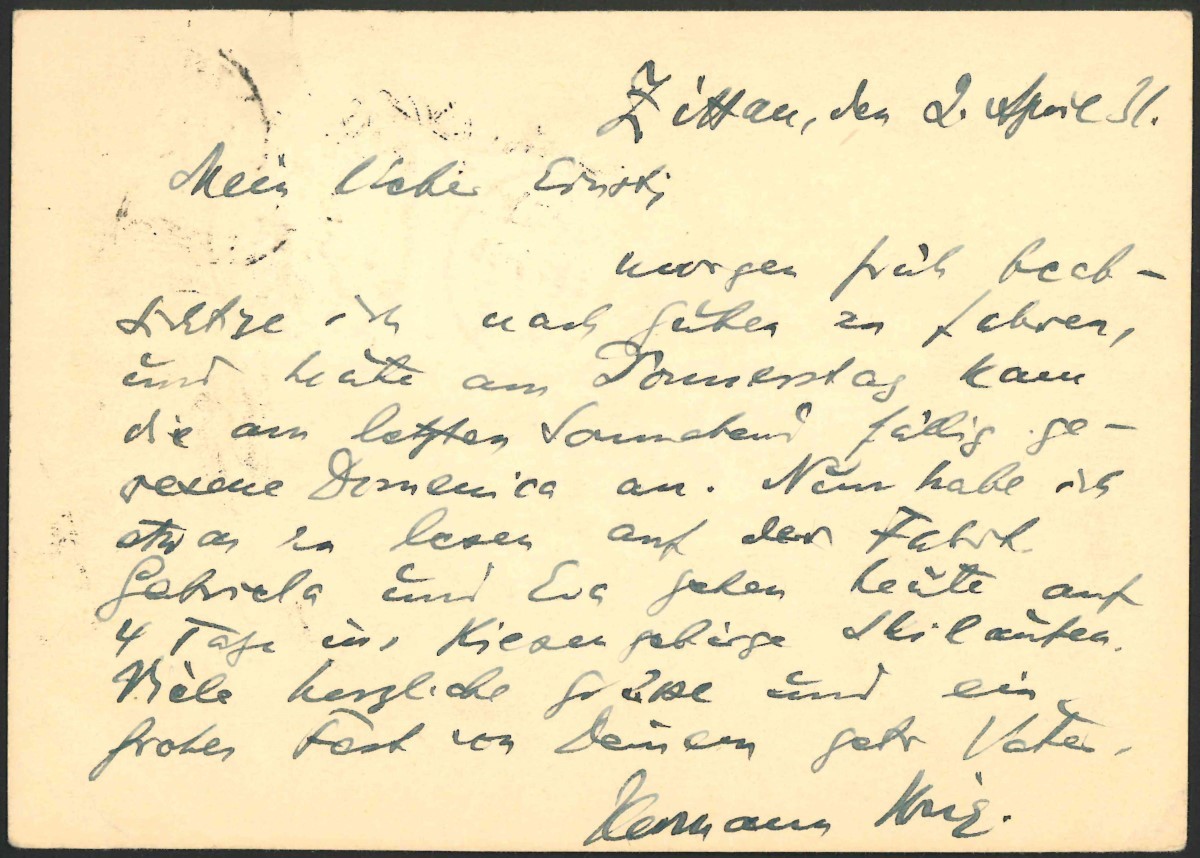 Zittau, den 2. April 31.
Mein lieber Ernst,
morgen früh beab-
sichtige ich nach Guben zu fahren,
und heute am Donnerstag kam
die am letzten Sonnabend fällig ge-
wesene Domenica an. Nun habe ich
etwas zu lesen auf der Fahrt.
Gabriela und Eva gehen heute auf
4 Tage ins Riesengebirge Skilaufen.
Viele herzliche Grüsse und ein
frohes Fest von Deinem getr Vater.
Hermann